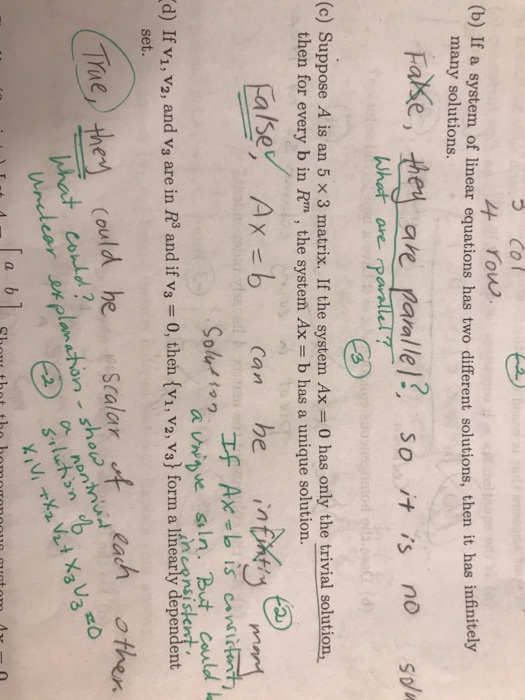 3 col
-2
4 row.
(b) If a system of linear equations has two different solutions, then it has infinitely
many solutions.
False, they are parallel?, so it is no soln
What are parallel?
-3
(c) Suppose A is an 5 × 3 matrix. If the system Ax = 0 has only the trivial solution,
then for every b in Rᵐ, the system Ax = b has a unique solution.
False, Ax = b can be infinitiy many
Solution.
-2
If Ax = b is consistent,
a unique soln. But could b
inconsistent.
(d) If v₁, v₂, and v₃ are in R³ and if v₃ = 0, then {v₁, v₂, v₃} form a linearly dependent
set.
True, they could be scalar of each other.
What could?
unclear explanation - show
a nontrivial
solution of
x₁v₁ + x₂v₂ + x₃v₃ = 0
-2
[a b]
Show that the homogeneous system Ax = 0